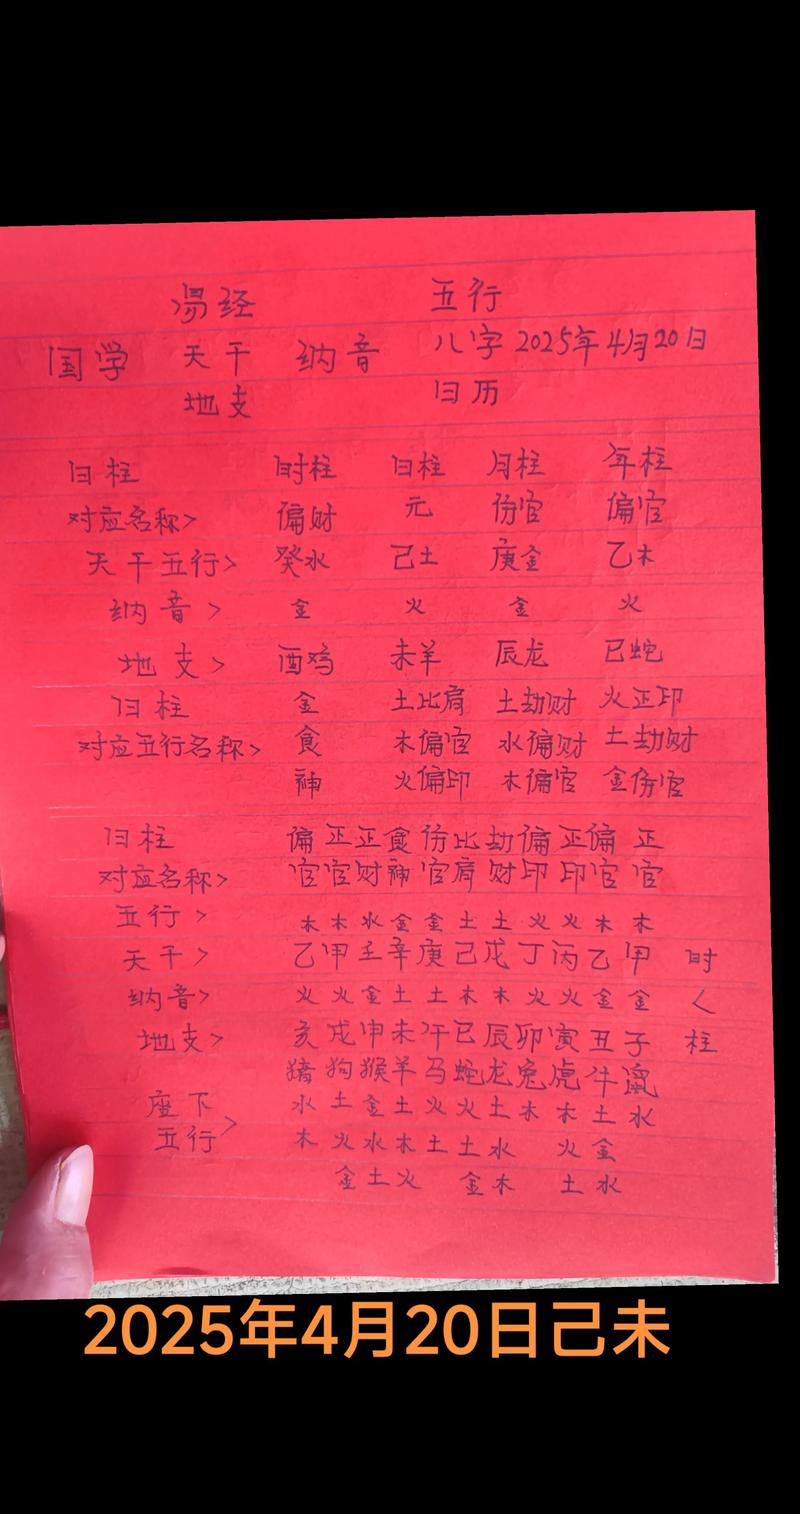 易经 五行
国学 天干 纳音 八字 2025年4月20日
地支 日历
日柱 时柱 日柱 月柱 年柱
对应名称> 偏财 元 伤官 偏官
天干五行> 癸水 己土 庚金 乙木
纳音> 金 火 金 火
地支> 酉鸡 未羊 辰龙 巳蛇
日柱 金 土比肩 土劫财 火正印
对应五行名称> 食 木偏官 水偏财 土劫财
神 火偏印 木偏官 金伤官
日柱 偏正正食伤比劫偏正偏正
对应名称> 官官财神官肩财印印官官
五行> 木木水金金土土火火木木
天干> 乙甲壬辛庚己戊丁丙乙甲 时
纳音> 火火金土土木木火火金金 人
地支> 亥戌申未午巳辰卯寅丑子 柱
猪狗猴羊马蛇龙兔虎牛鼠
座下 水土金土火火土木木土水
五行> 木火水木土土水 火金
金土火 金木 土水
2025年4月20日己未